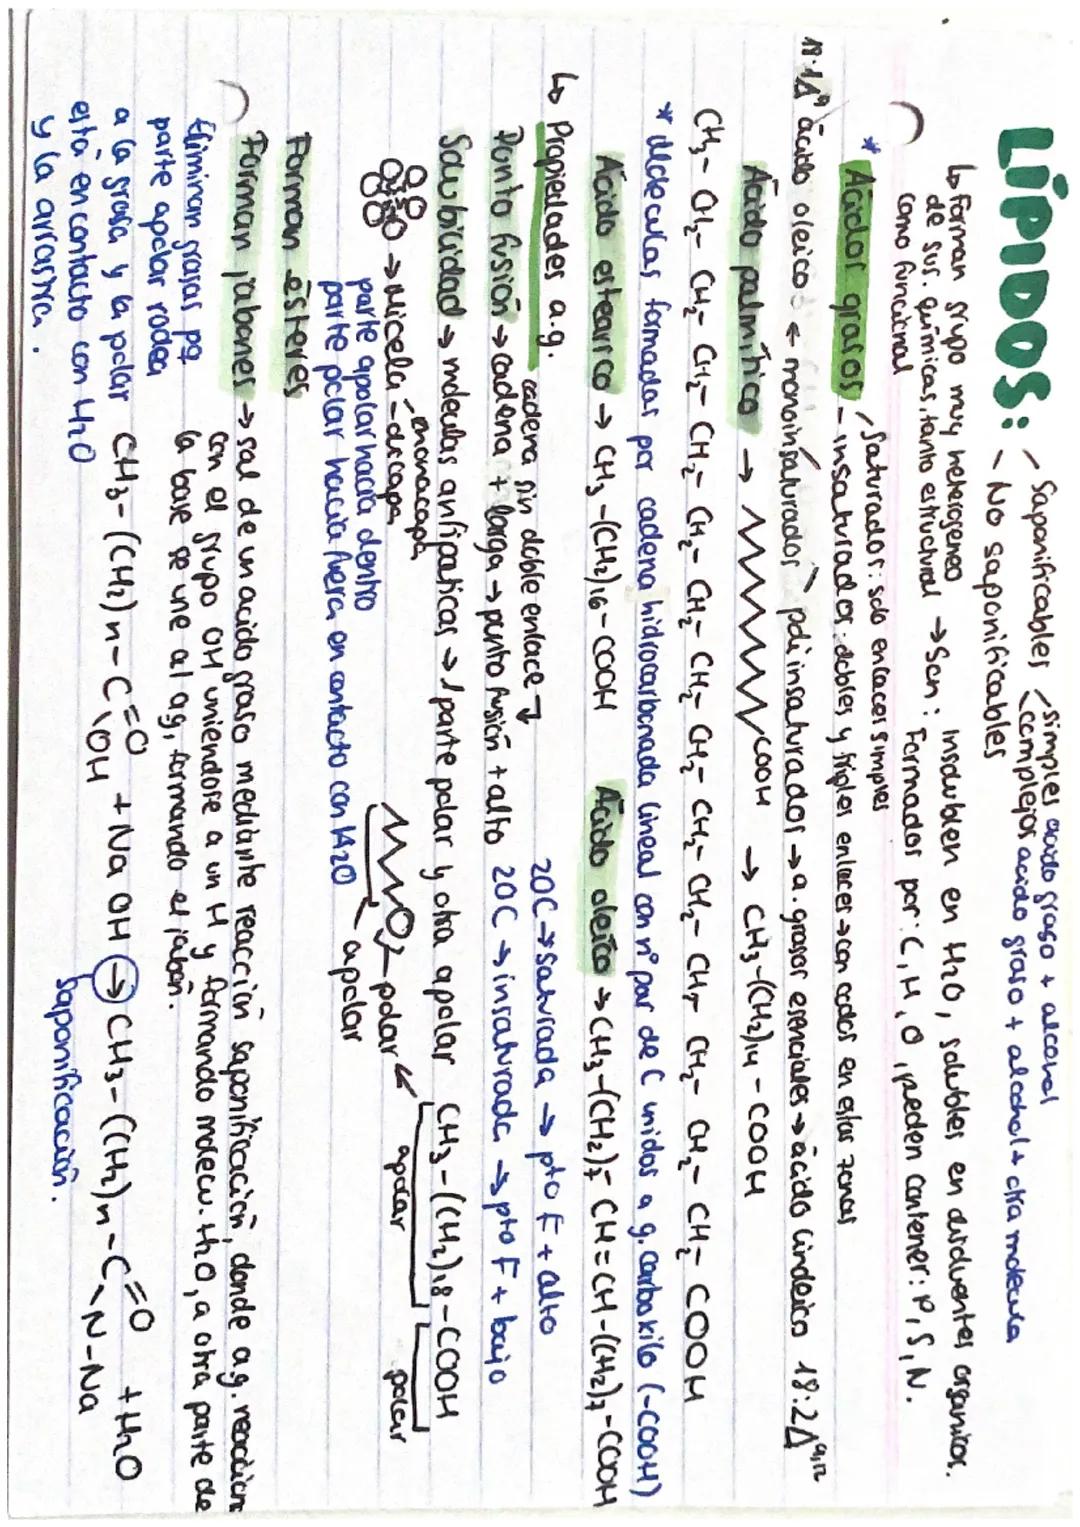 LÍPIDOS: - Saponificables < simples acido graso + alcohol
complejos acido graso + alcohol + otra molecula
- No saponificables
↳ Forman grupo muy heterogeneo
de sus. químicas, tanto estructural → Son: insolublen en H2O, solubles en disolventes organicos.
como funcional Formados por: C, H, O, pueden contener: P, S, N.
* Acidos grasos - saturados: solo enlaces simples
- insaturados: dobles y triples enlaces → con codos en estas zonas
18:1Δ⁹ ácido oleico ← monoinsaturados poliinsaturados → a. grasos esenciales → ácido linoleico 18:2Δ⁹,¹²
Ácido palmítico → COOH → CH3-(CH2)14-COOH
CH3-CH2-CH2-CH2-CH2-CH2-CH2-CH2-CH2-CH2-CH2-CH2-CH2-CH2-CH2-COOH
* Moleculas formadas por cadena hidrocarbonada lineal con nº par de C unidos a g. carboxilo (-COOH)
Ácido estearico → CH3-(CH2)16-COOH Ácido oleico → CH3-(CH2)7-CH=CH-(CH2)7-COOH
↳ Propiedades a.g. cadena sin doble enlace 20C → saturada → pto F + alto
Punto fusión → cadena + larga → punto fusión + alto 20C → insaturada → pto F + bajo
Solubicidad → moleculas anfipaticas → 1 parte polar y otra apolar CH3-(CH2)18-COOH
apolar polar
→ Micela - monocapa
- dicapa
polar
apolar
parte apolar hacia dentro
parte polar hacia fuera en contacto con H2O
Forman ésteres
Forman jabones → sal de un acido graso mediante reacción saponificación, donde a.g. reacciona
con el grupo OH uniendose a un H y formando molecu. H2O, a otra parte de
la base se une al ag, formando el jabón.
Eliminan grasas pq
parte apolar rodea
a la grasa y la polar
está en contacto con H2O
y la arrastra.
CH3-(CH2)n-C=O \OH + NaOH → CH3-(CH2)n-C=O \N-Na + H2O
Saponificación.